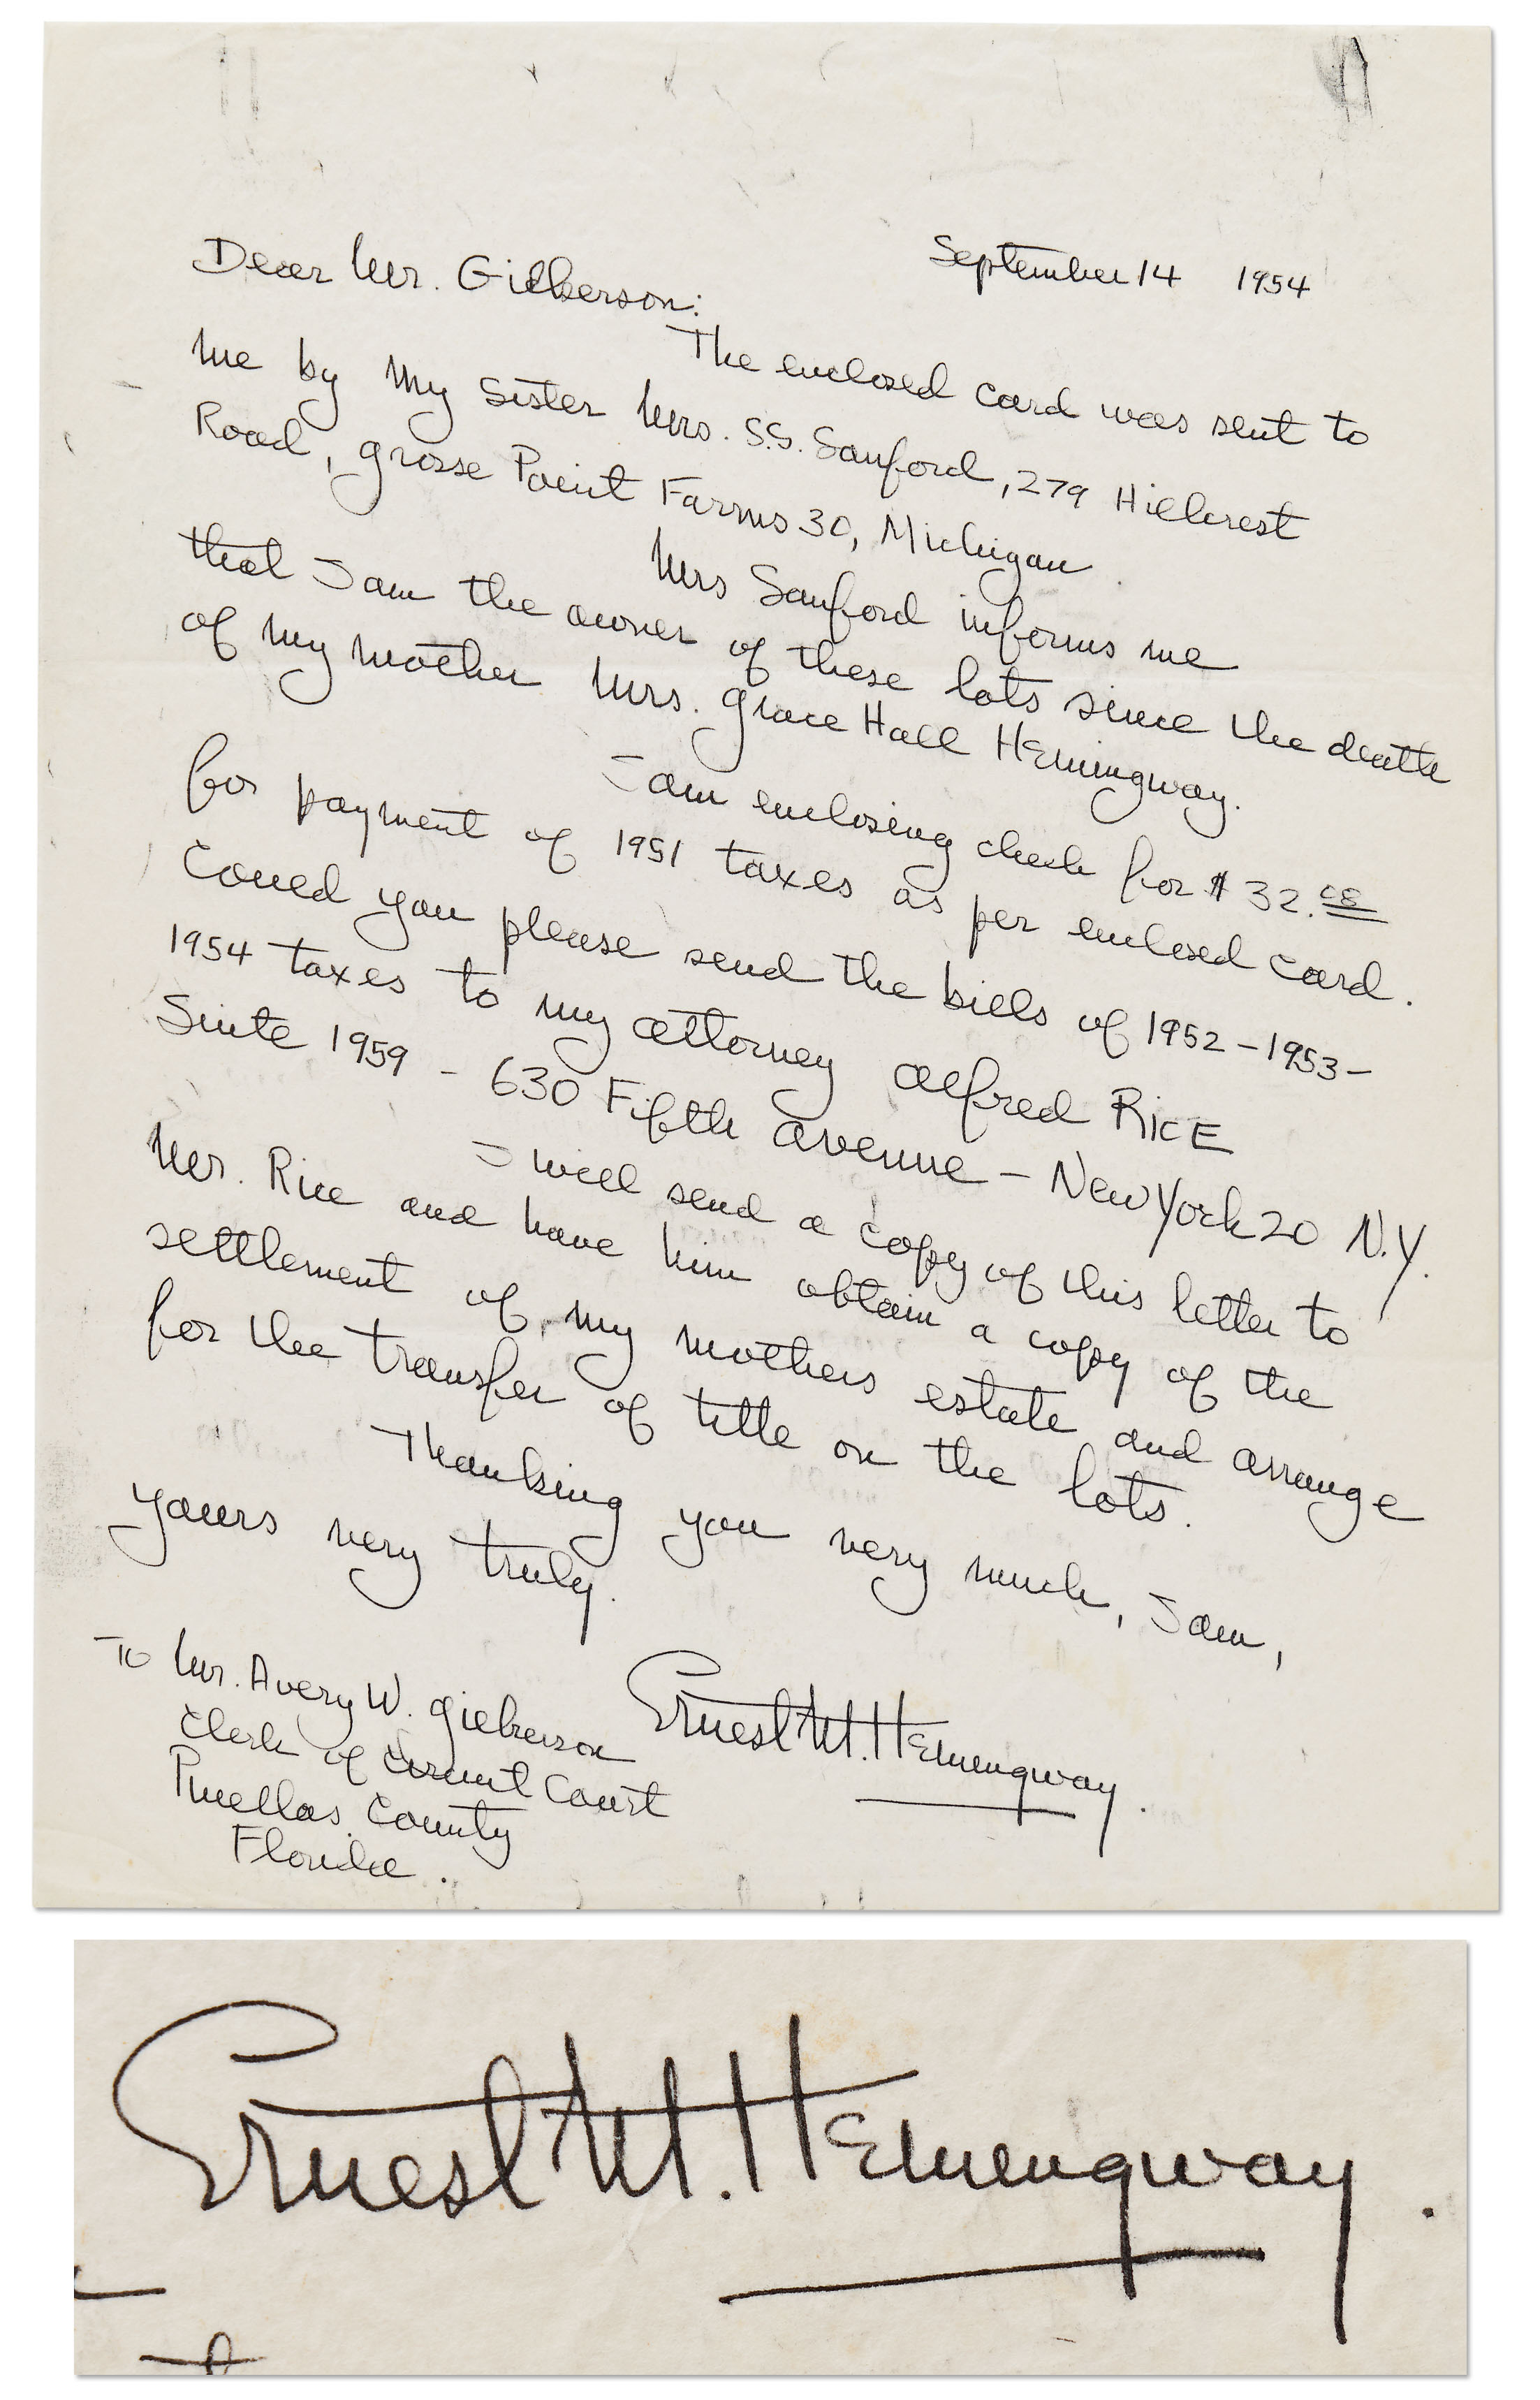 September 14 1954
Dear Mr. Gilkerson:
The enclosed card was sent to
me by my sister Mrs. S.S. Sanford, 279 Hillcrest
Road, Grosse Point Farms 30, Michigan.
Mrs Sanford informs me
that I am the owner of these lots since the death
of my mother Mrs. Grace Hall Hemingway.
I am enclosing check for $ 32.08
for payment of 1951 taxes as per enclosed card.
Could you please send the bills of 1952-1953-
1954 taxes to my attorney Alfred RICE
Suite 1959 - 630 Fifth Avenue - New York 20 N.Y.
I will send a copy of this letter to
Mr. Rice and have him obtain a copy of the
settlement of my mothers estate and arrange
for the transfer of title on the lots.
Thanking you very much, I am,
yours very truly.
Ernest M. Hemingway.
To Mr. Avery W. Gilkerson
Clerk of Circuit Court
Pinellas County
Florida.
Ernest M. Hemingway.